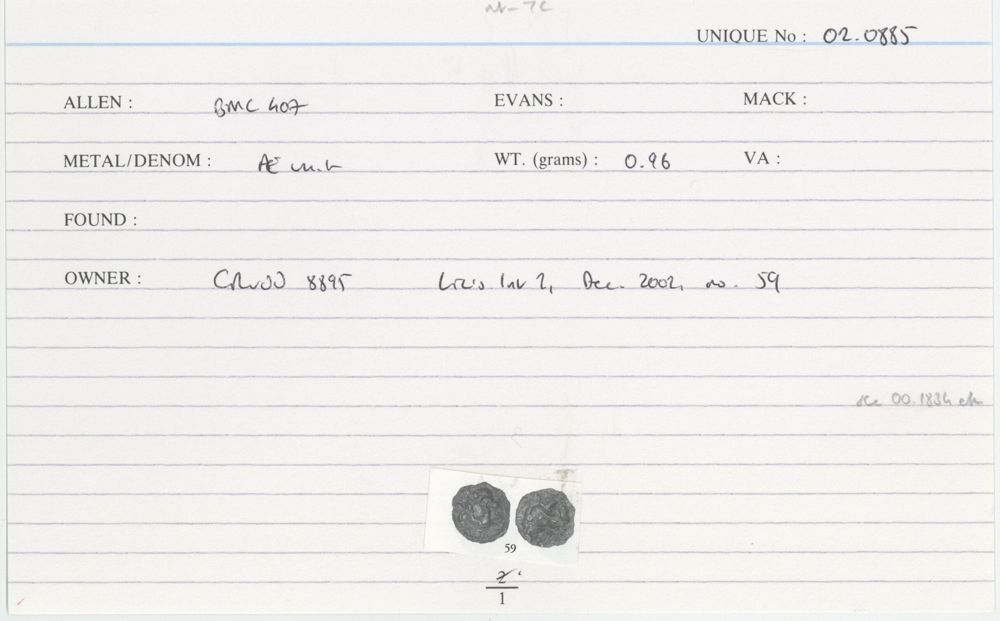 UNIQUE No : 02.0885
ALLEN : BMC 407 EVANS : MACK :
METAL/DENOM : Æ unit WT. (grams) : 0.96 VA :
FOUND :
OWNER : 8895 Dec. 2002, no. 59
see 00.1834
59
2
1